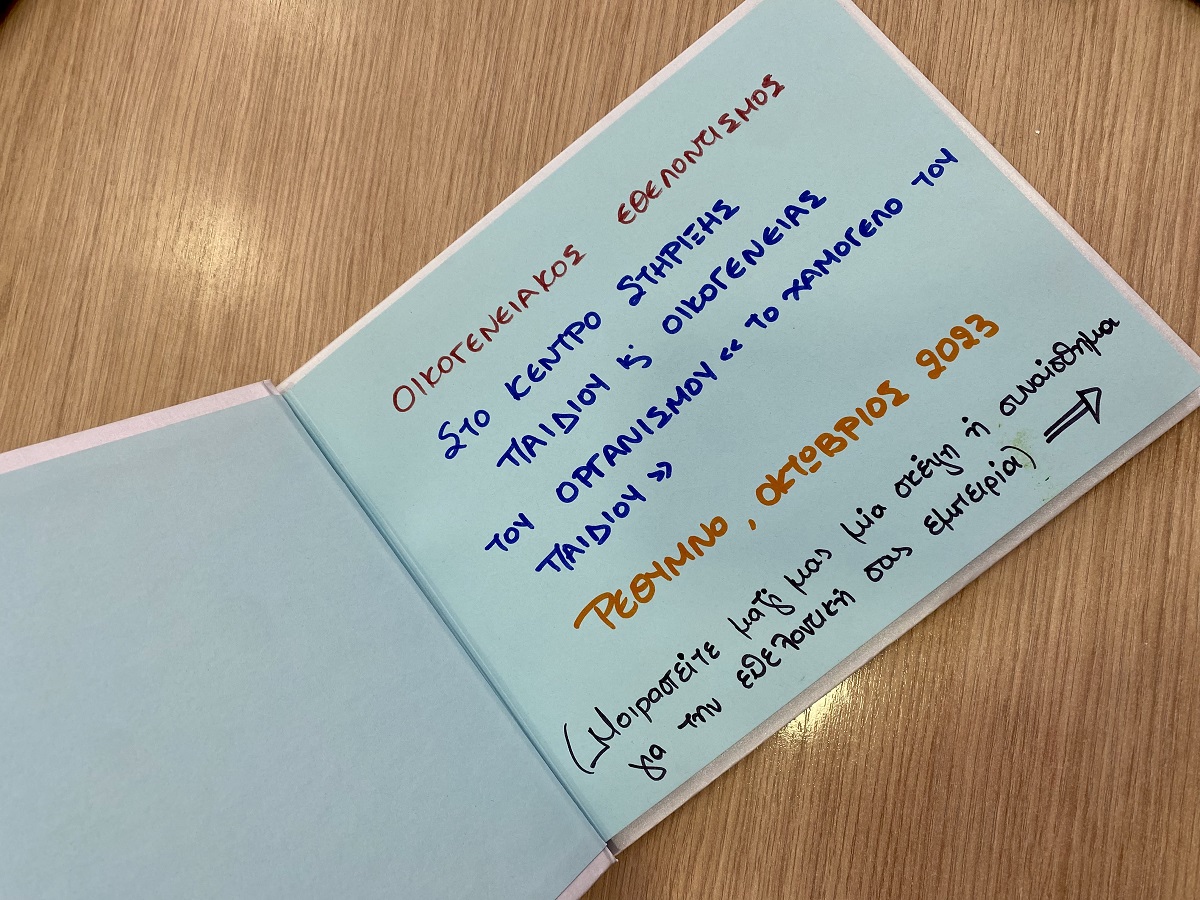 ΟΙΚΟΓΕΝΕΙΑΚΟΣ ΕΘΕΛΟΝΤΙΣΜΟΣ
ΣΤΟ ΚΕΝΤΡΟ ΣΤΗΡΙΞΗΣ
ΠΑΙΔΙΟΥ Κ' ΟΙΚΟΓΕΝΕΙΑΣ
ΤΟΥ ΟΡΓΑΝΙΣΜΟΥ «ΤΟ ΧΑΜΟΓΕΛΟ ΤΟΥ
ΠΑΙΔΙΟΥ»
ΡΕΘΥΜΝΟ, ΟΚΤΩΒΡΙΟΣ 2023
(Μοιραστείτε μαζί μας μία σκέψη ή συναίσθημα
για την εθελοντική σας εμπειρία) ⇒